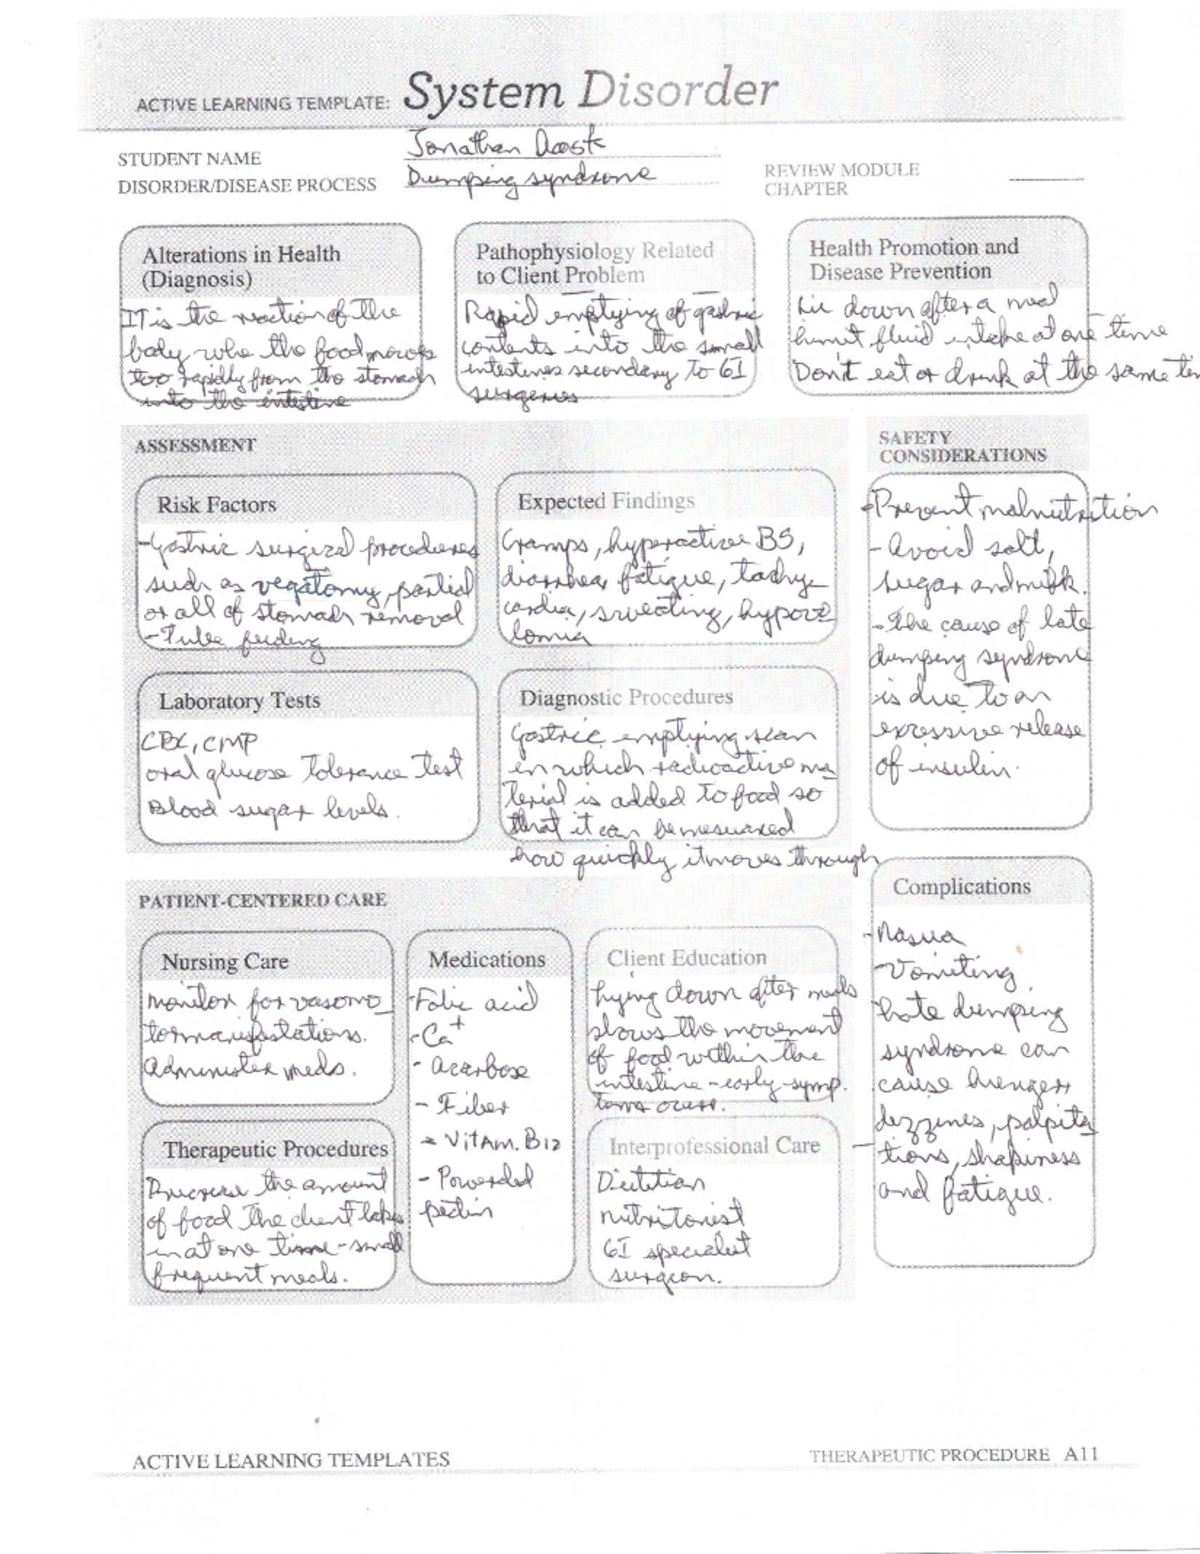 ACTIVE LEARNING TEMPLATE: System Disorder
STUDENT NAME Jonathan
DISORDER/DISEASE PROCESS Dumping syndrome
REVIEW MODULE
CHAPTER
Alterations in Health
(Diagnosis)
IT is the reaction of the
body whe the food moves
too rapidly from the stomach
into the intestine
Pathophysiology Related
to Client Problem
Rapid emptying of gastric
contents into the small
intestines secondary to GI
surgeries
Health Promotion and
Disease Prevention
Lie down after a meal
limit fluid intake at one time
Don't eat or drink at the same
ASSESSMENT
Risk Factors
-Gastric surgical procedures
such as vegatomy, partial
or all of stomach removal
-Tube feeding
Expected Findings
Cramps, hyperactive BS,
diarrhea, fatigue, tachy-
cardia, sweating, hypove
lomia
SAFETY
CONSIDERATIONS
-Prevent malnutrition
- Avoid salt,
sugar and milk.
-The cause of late
dumping syndrome
is due to an
excessive release
of insulin.
Laboratory Tests
CBC, CMP
oral glucose Tolerance Test
Blood sugar levels.
Diagnostic Procedures
Gastric emptying scan
in which radioactive ma
terial is added to food so
that it can be mesuared
how quickly it moves through
PATIENT-CENTERED CARE
Nursing Care
monitor for vasomo
tor manifestations.
Administer meds.
Medications
-Folic acid
-Ca+
- acarbose
- Fiber
- VitAm. B12
- Powerded
pectin
Client Education
lying down after meals
slows the movement
of food within the
intestine - early symp.
toms occur.
Complications
-Nasua
-Vomiting
late dumping
syndrome can
cause hunger,
dezzines, palpita
tions, shakiness
and fatigue.
Therapeutic Procedures
the amount
of food the client takes
in at one time - small
frequent meals.
Interprofessional Care
Dietitian
nutritonist
GI specialist
surgeon.
ACTIVE LEARNING TEMPLATES
THERAPEUTIC PROCEDURE A11